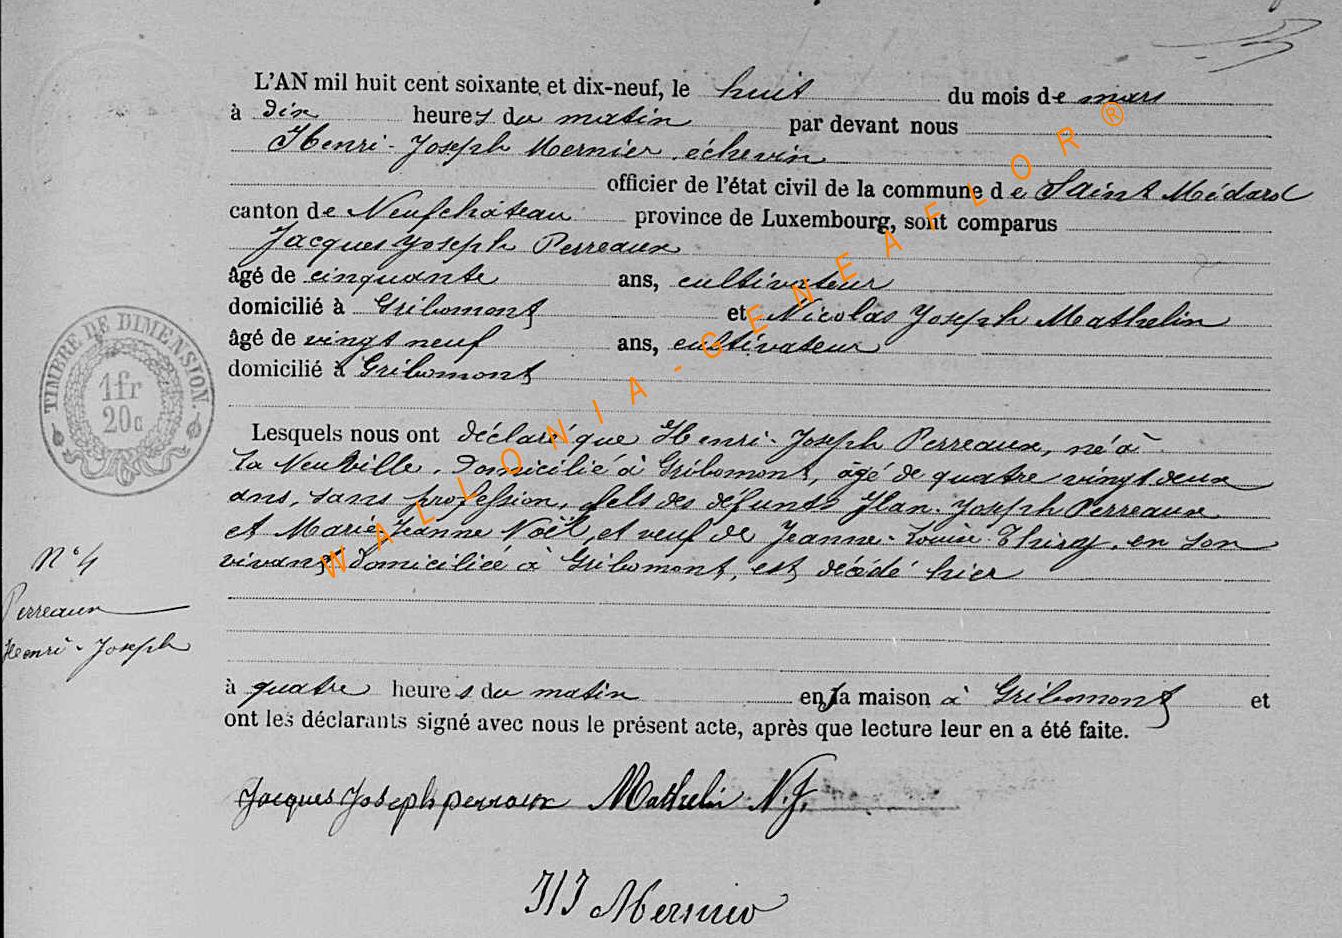 L'AN mil huit cent soixante et dix-neuf, le huit du mois de mars
à dix heures du matin par devant nous
Henri-Joseph Mernier, échevin
officier de l'état civil de la commune de Saint Médard
canton de Neufchâteau province de Luxembourg, sont comparus
Jacques Joseph Perreaux
âgé de cinquante ans, cultivateur
domicilié à Gribomont et Nicolas Joseph Mathelin
âgé de vingt neuf ans, cultivateur
domicilié à Gribomont
TIMBRE DE DIMENSION.
1fr
20c
Lesquels nous ont déclaré que Henri-Joseph Perreaux, né à
la Neuville, domicilié à Gribomont, âgé de quatre vingt deux
ans, sans profession, fils des défunts Jean-Joseph Perreaux
et Marie Jeanne Noël, et veuf de Jeanne-Louise Thiry, en son
vivant domiciliée à Gribomont, est décédé hier
N° 4
Perreaux
Henri-Joseph
à quatre heures du matin en sa maison à Gribomont et
ont les déclarants signé avec nous le présent acte, après que lecture leur en a été faite.
Jacques Joseph perraux Mathelin N.J.
Mernier
WALLONIA-GENEAFLOR®